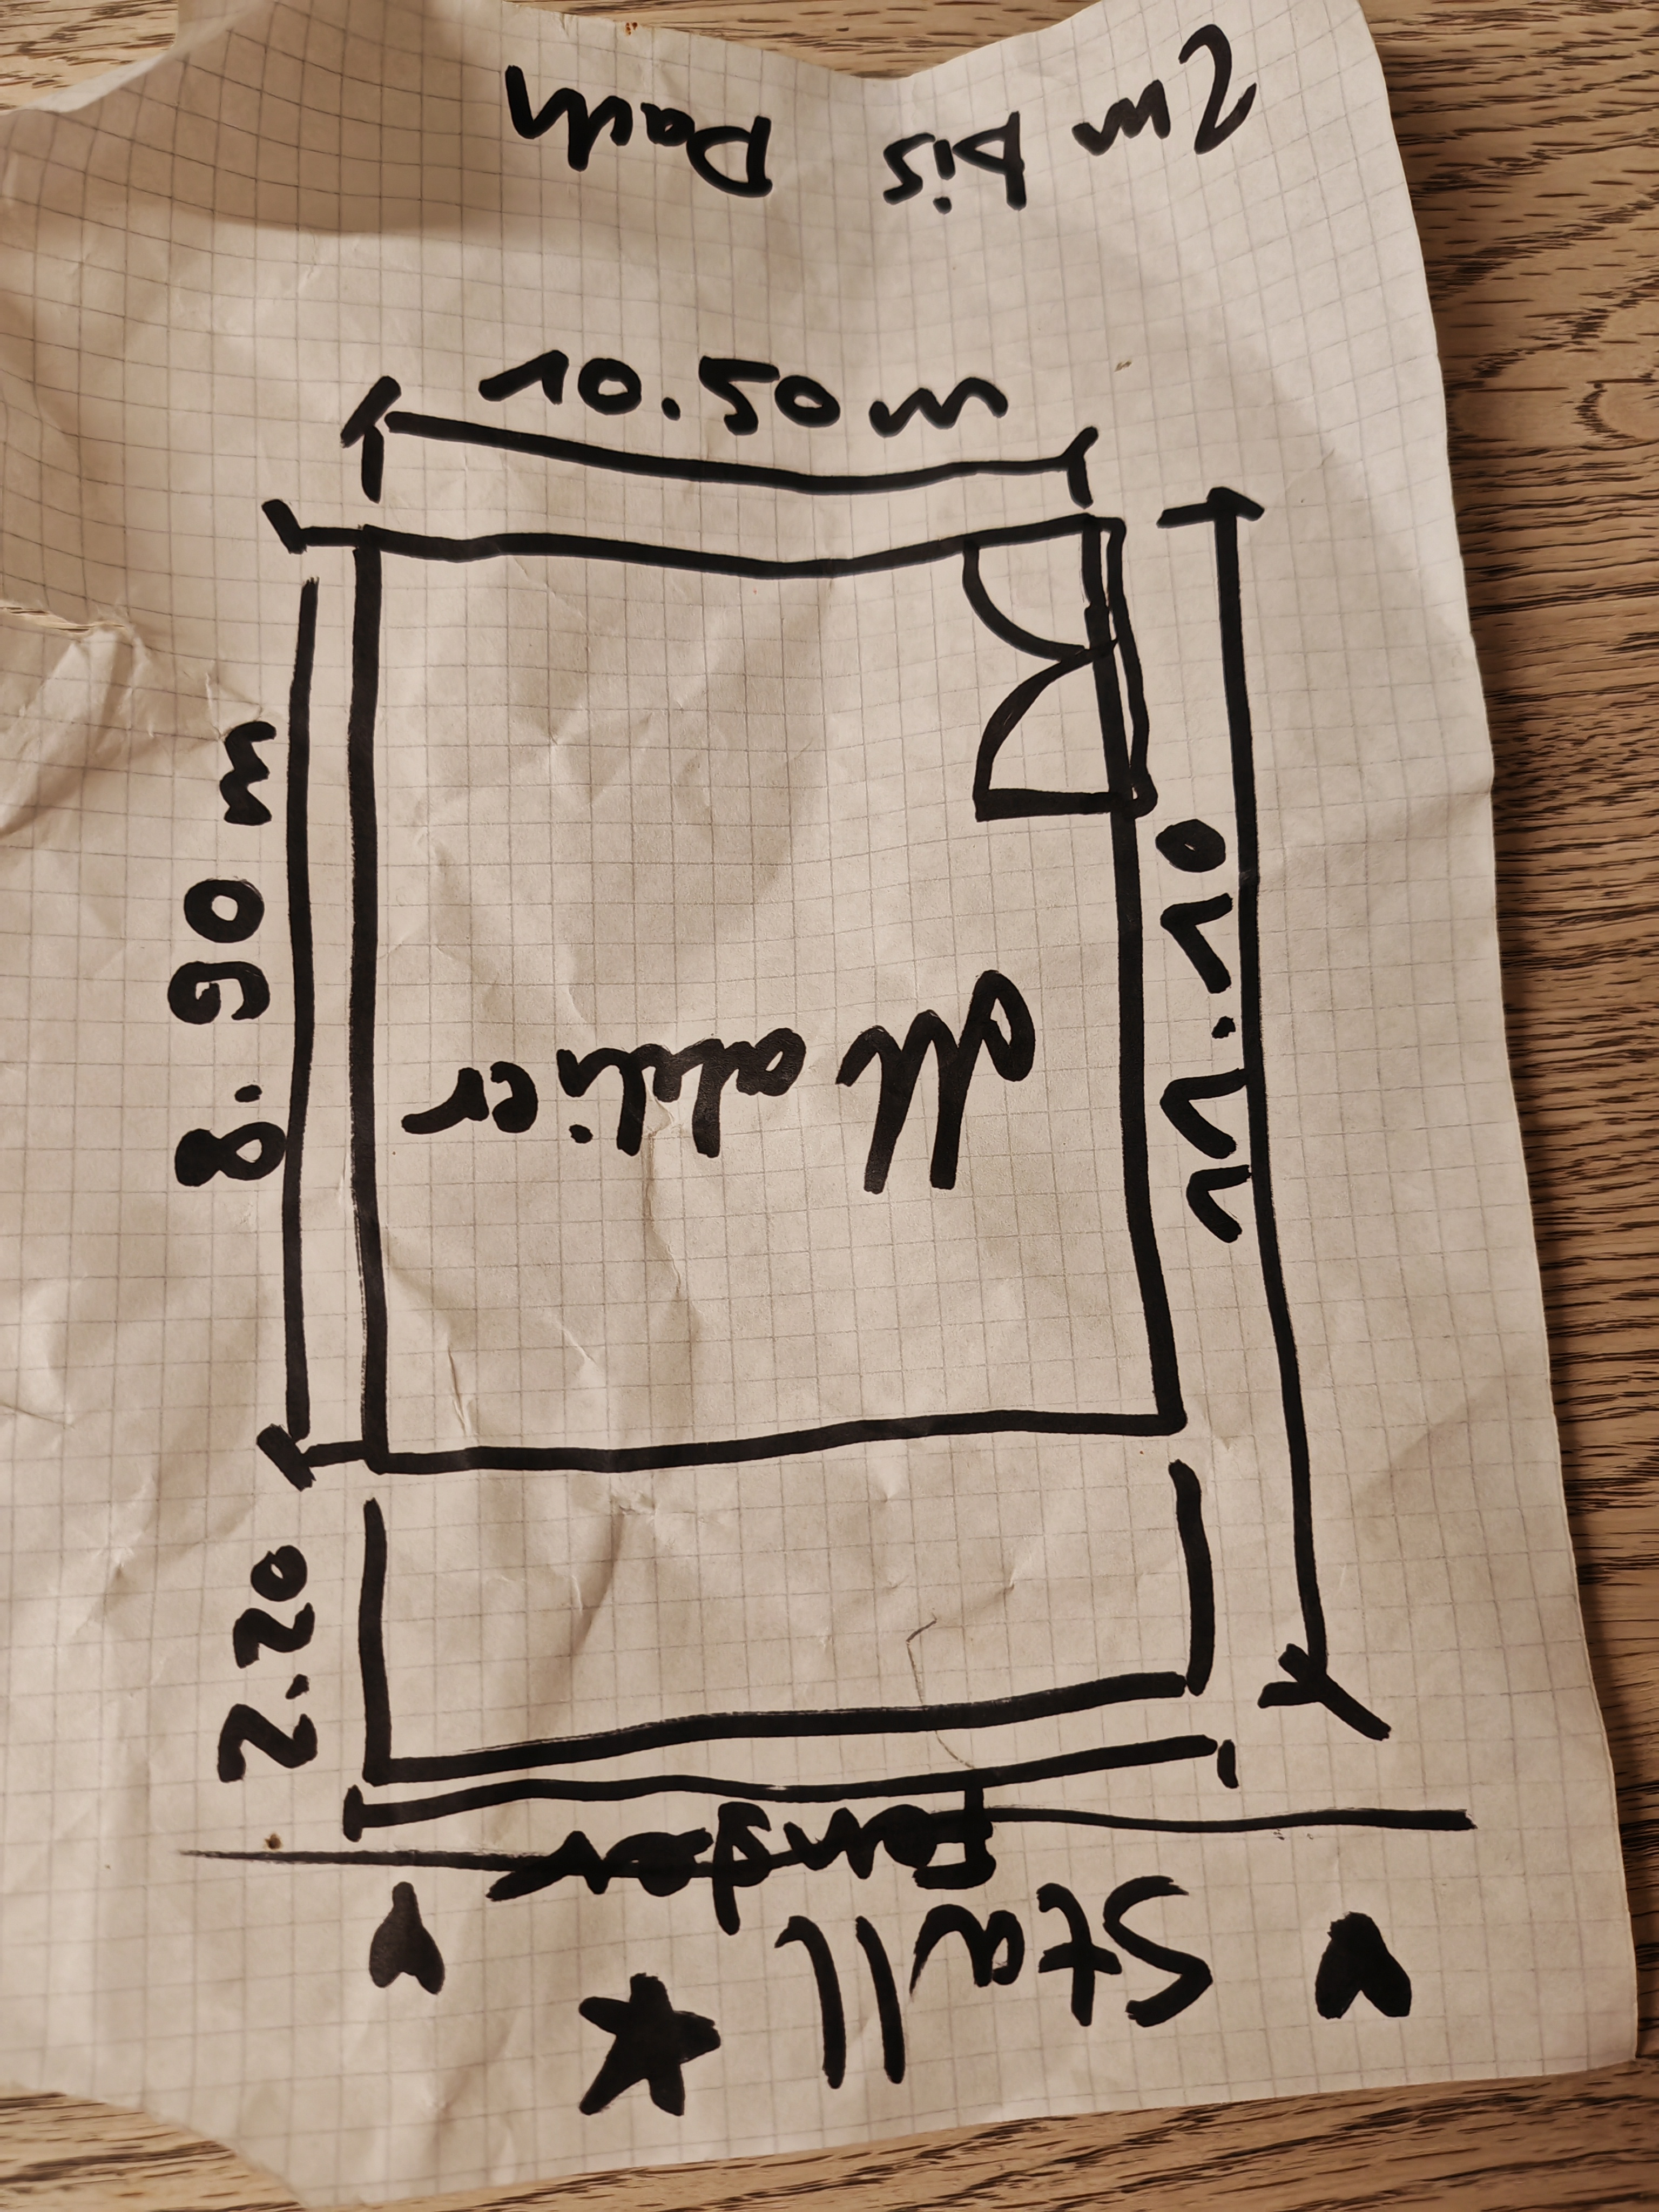 2m bis Dach
10.50 m
8.90 m
11.10
atelier
2.20
Stall